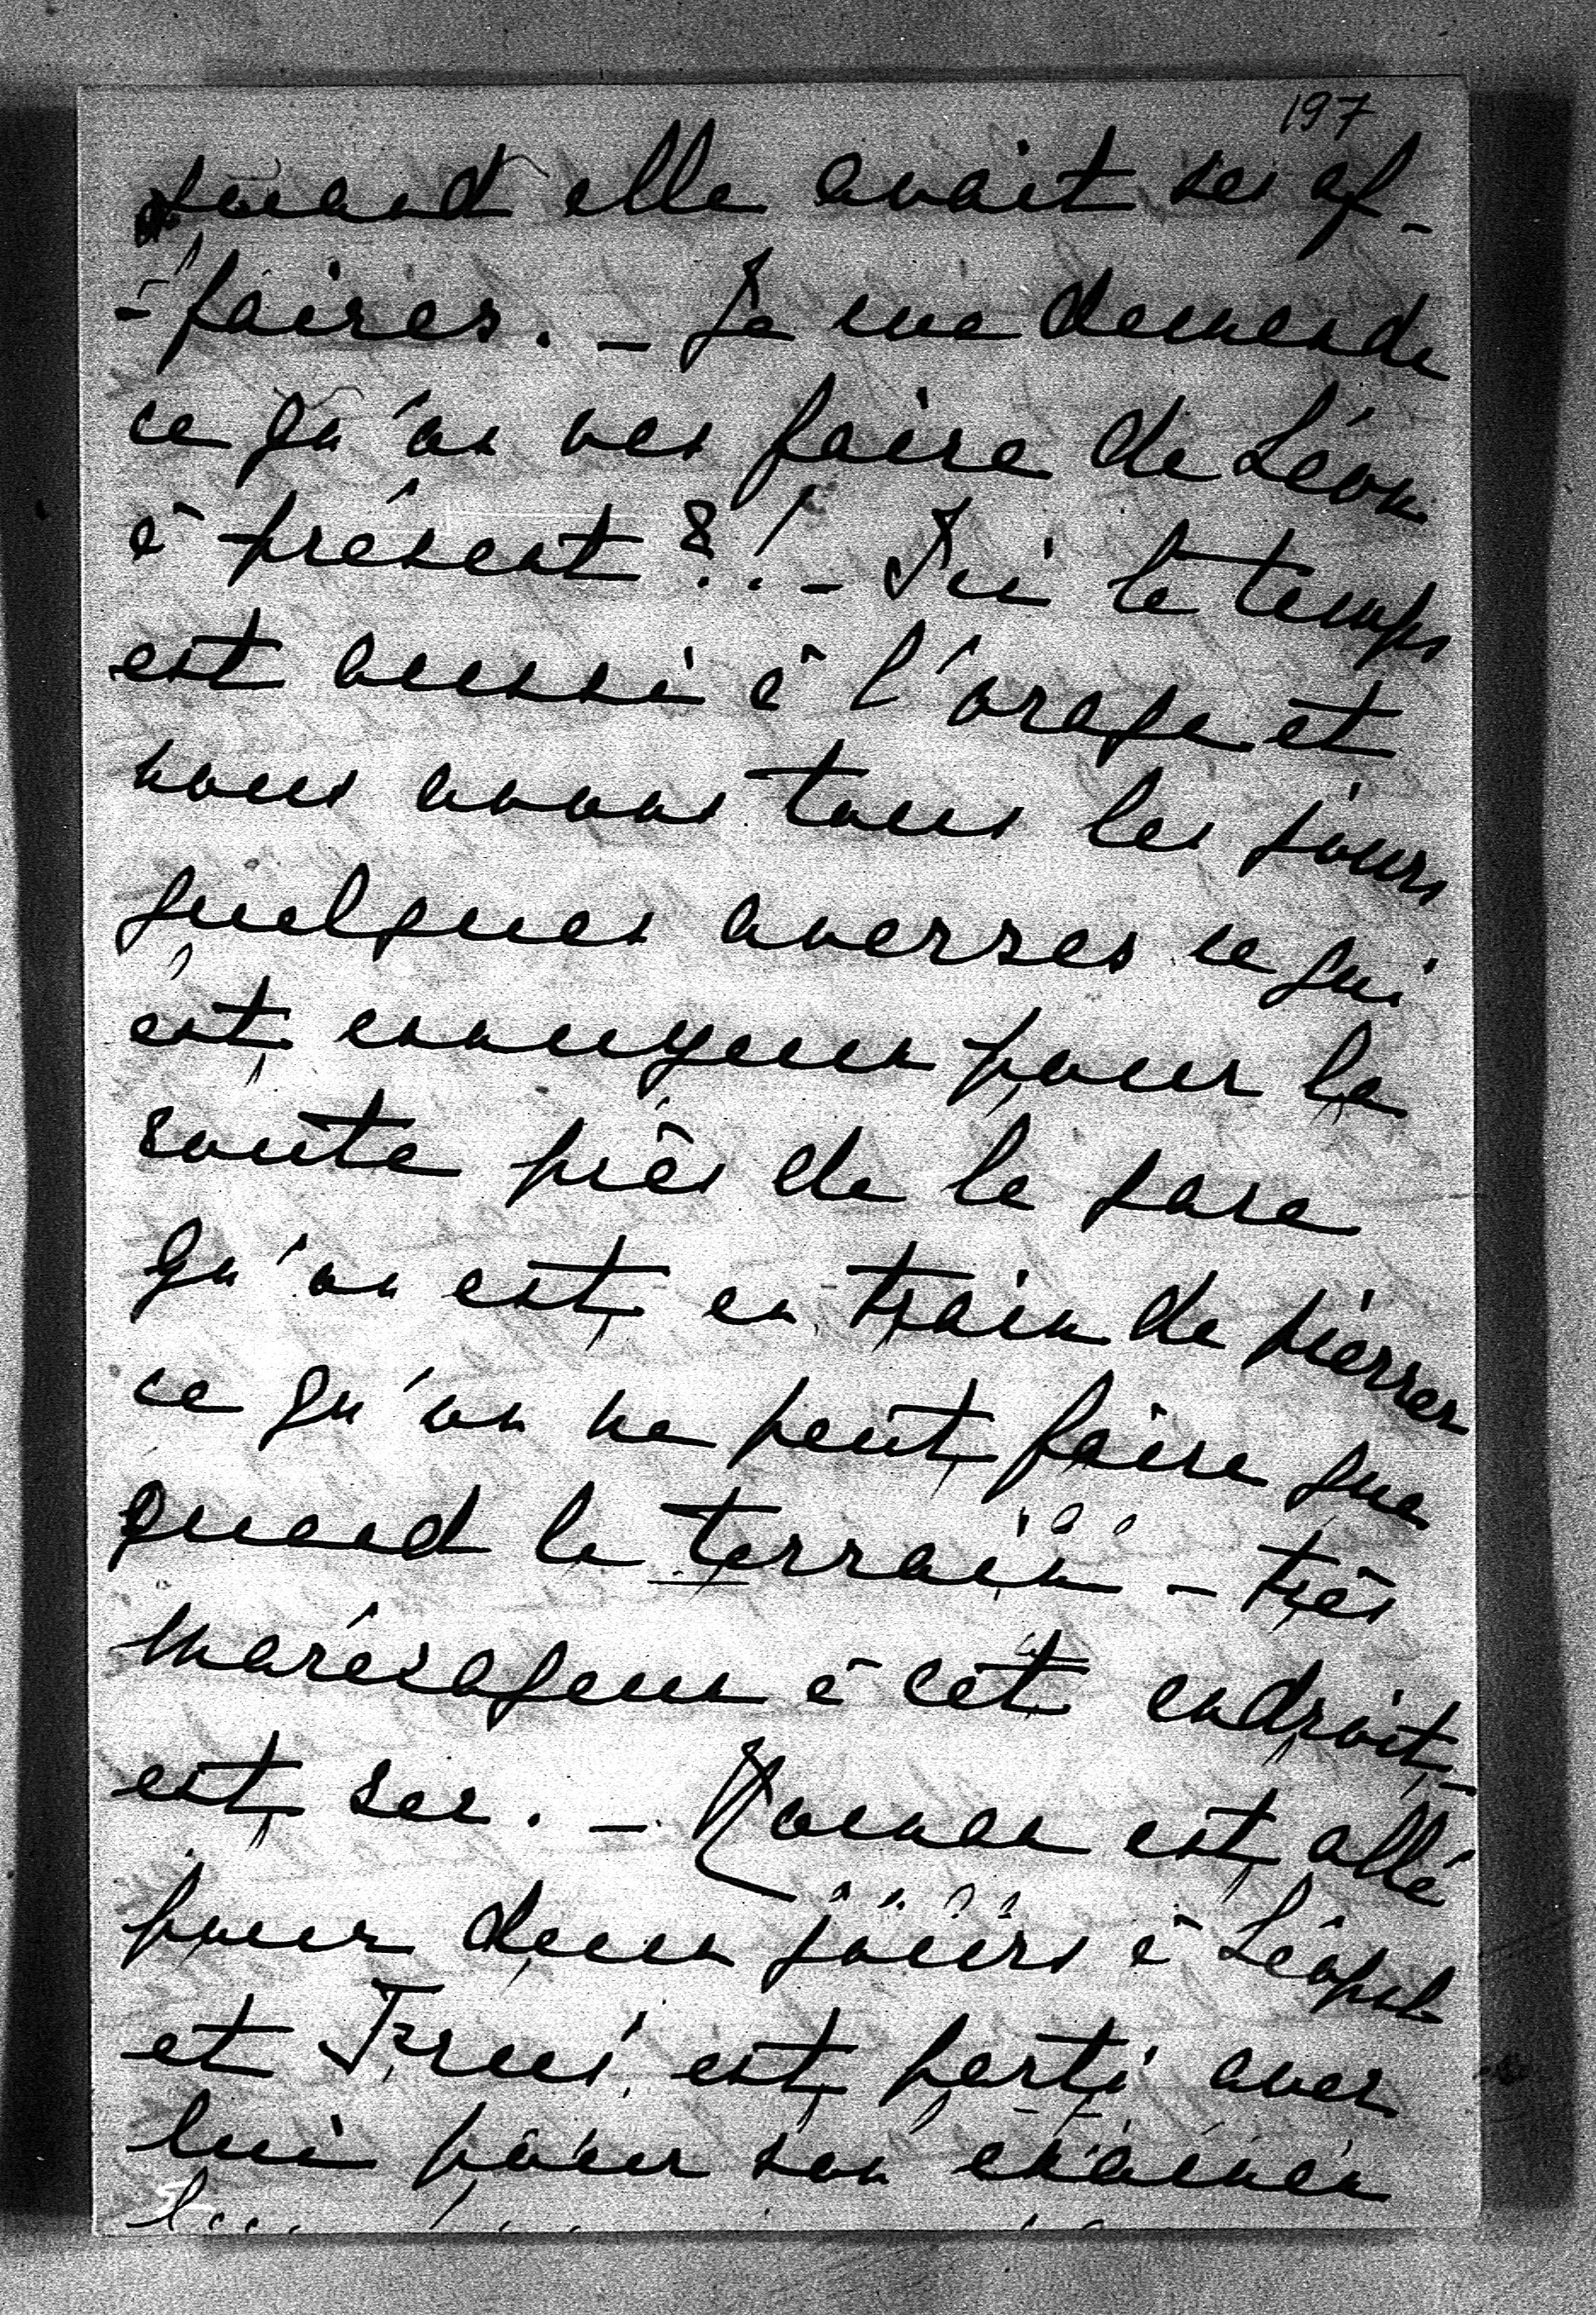 197
quand elle avait ses af-
-faires. - Je me demande
ce qu'on va faire de Léon
à présent ?! - Ici le temps
est aussi à l'orage et
nous avons tous les jours
quelques averses ce qui
est ennuyeux pour la
route près de la gare
qu'on est en train de pierrer
ce qu'on ne peut faire que
quand le terrain - très
marécageux à cet endroit -
est sec. - est allé
pour deux jours à Léopol
et est parti avec
lui pour son examen